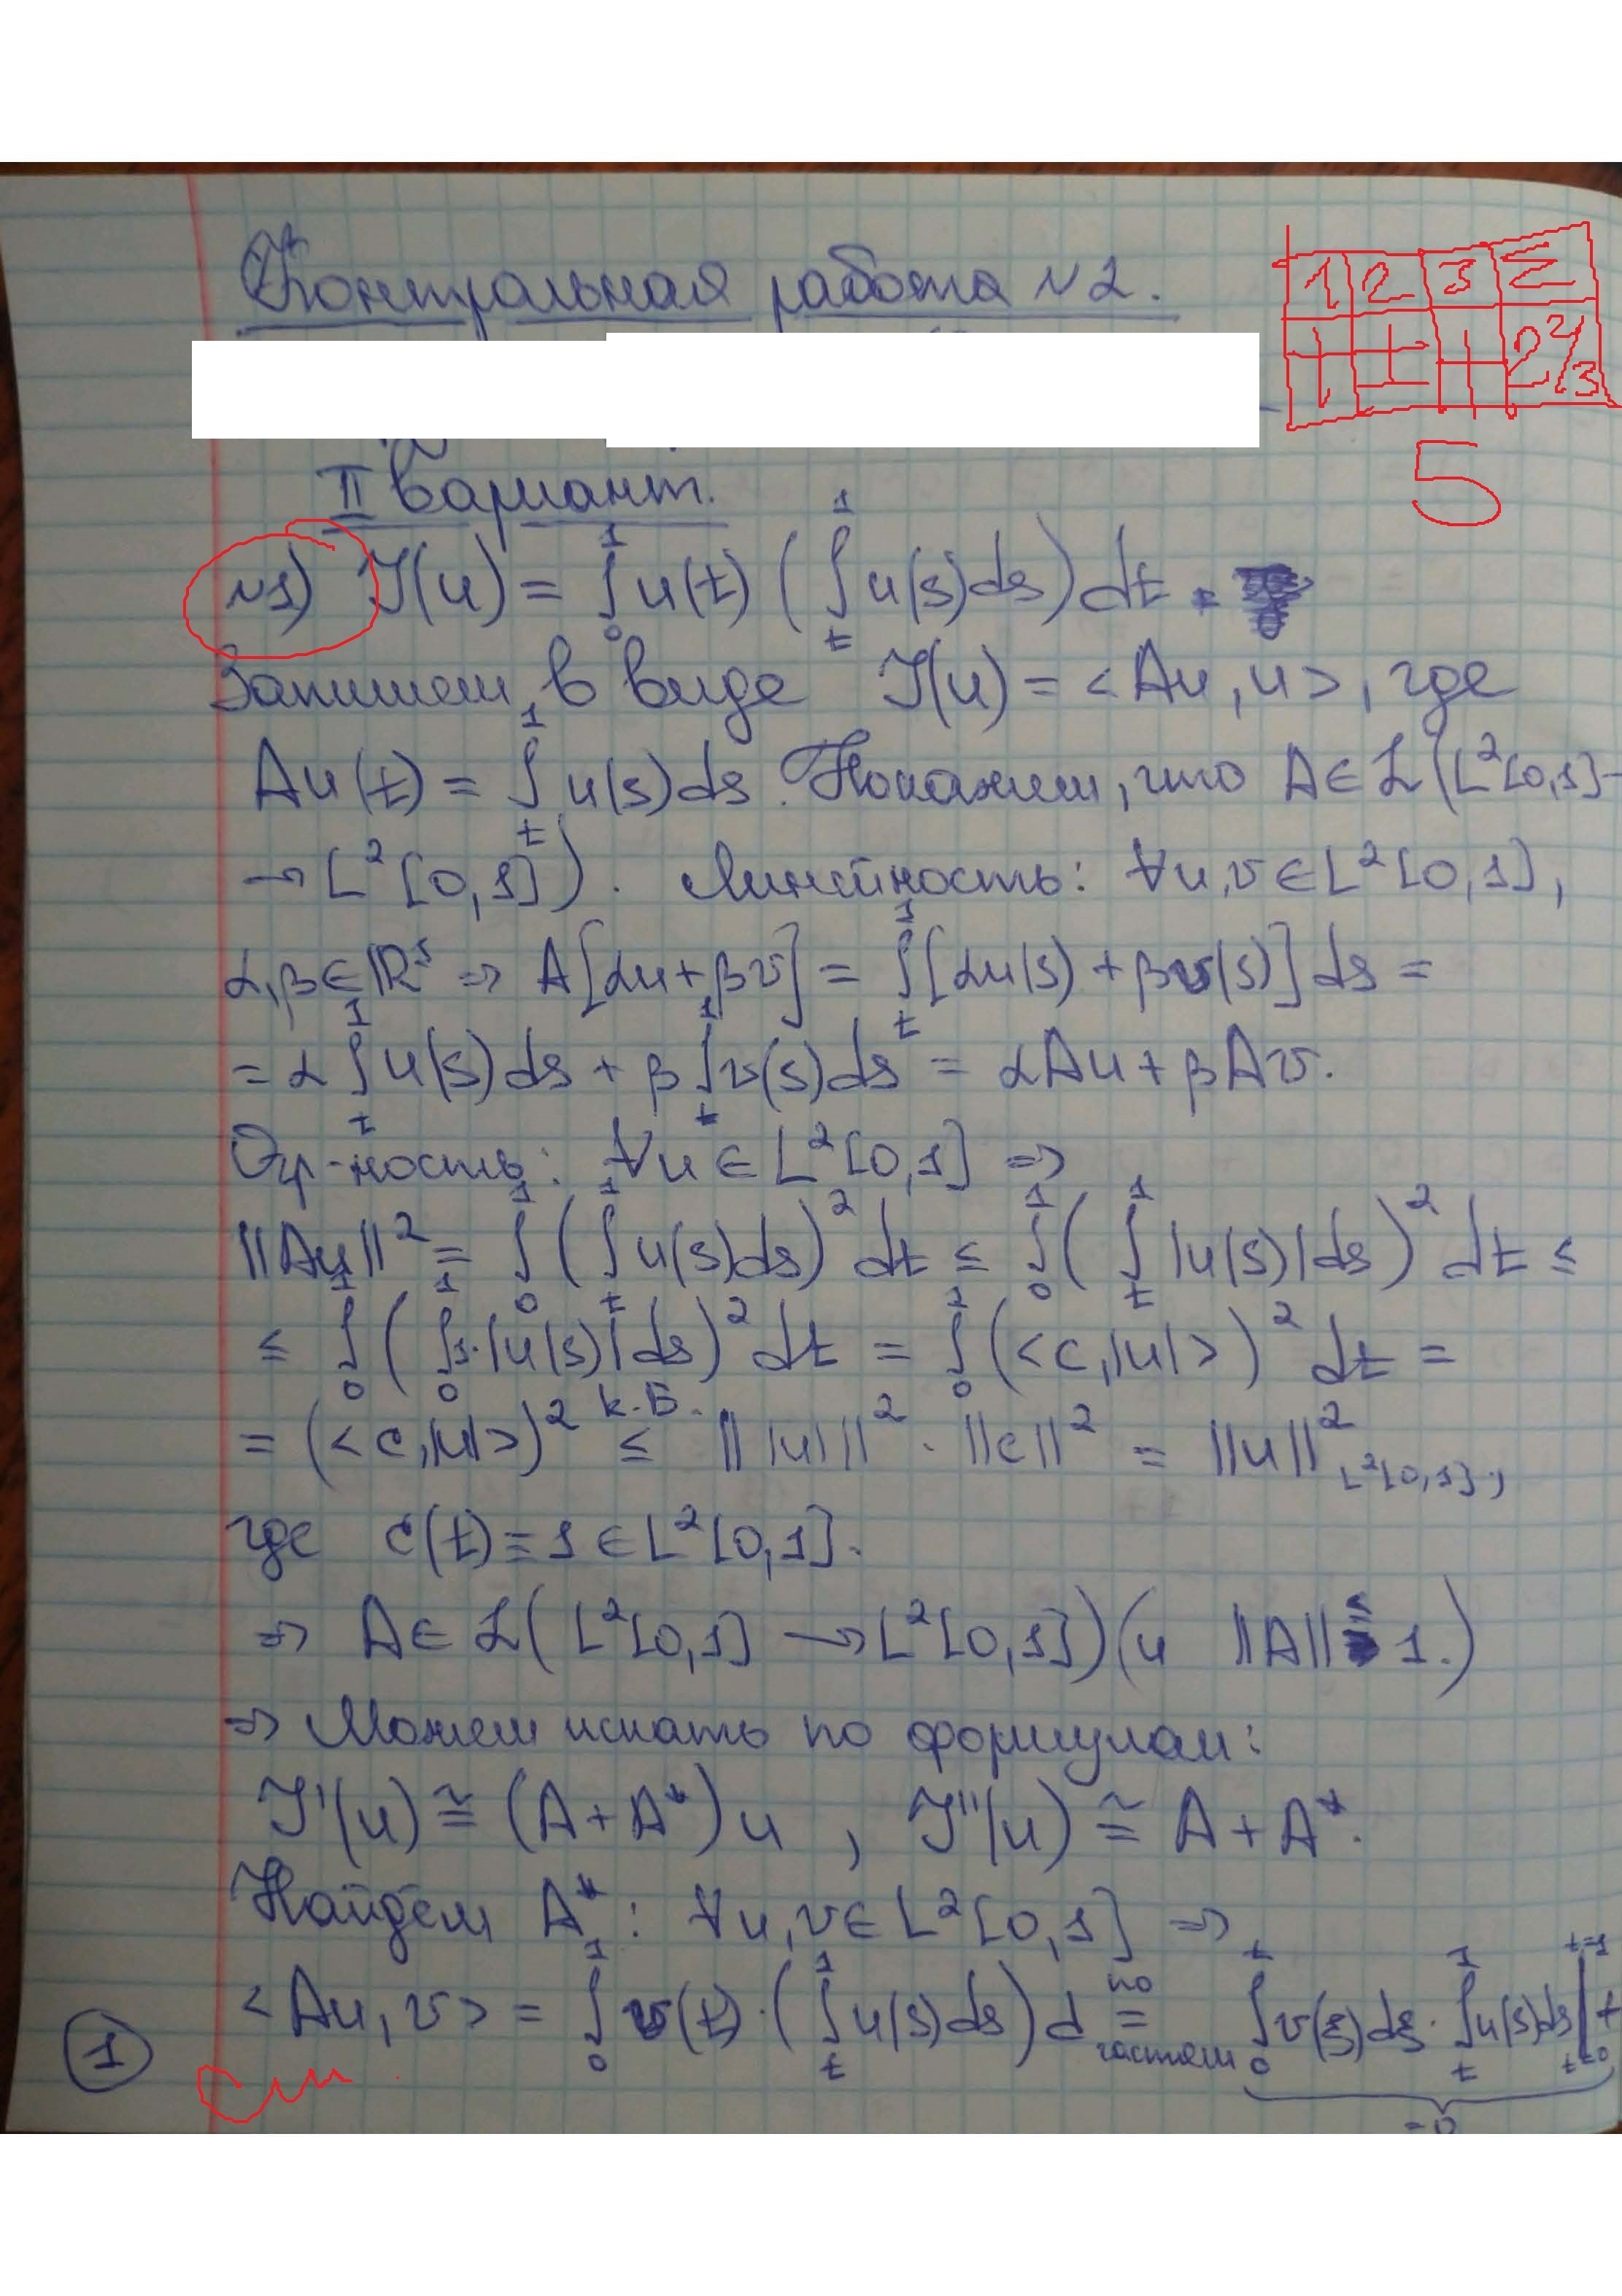 Контрольная работа №2.
1 2 3 Σ
+ ± + 2 2/3
5
II вариант.
№1) J(u) = ∫₀¹ u(t) (∫ₜ¹ u(s)ds) dt.
Запишем в виде J(u) = <Au, u>, где
Au(t) = ∫ₜ¹ u(s)ds. Покажем, что A ∈ ℒ(L²[0,1] →
→ L²[0,1]). Линейность: ∀u,v ∈ L²[0,1],
α,β ∈ ℝ¹ ⇒ A[αu+βv] = ∫ₜ¹ [αu(s) + βv(s)] ds =
= α ∫ₜ¹ u(s)ds + β ∫ₜ¹ v(s)ds = αAu + βAv.
Огр-ность: ∀u ∈ L²[0,1] ⇒
||Au||² = ∫₀¹ (∫ₜ¹ u(s)ds)² dt ≤ ∫₀¹ (∫ₜ¹ |u(s)|ds)² dt ≤
≤ ∫₀¹ (∫₀¹ 1·|u(s)|ds)² dt = ∫₀¹ (<c,|u|>)² dt =
= (<c,|u|>)² ≤ К.-Б. || |u| ||² · ||c||² = ||u||² L²[0,1],
где c(t) ≡ 1 ∈ L²[0,1].
⇒ A ∈ ℒ(L²[0,1] → L²[0,1]) (и ||A|| ≤ 1.)
⇒ Можем искать по формулам:
J'(u) ≅ (A+A*)u, J''(u) ≅ A+A*.
Найдём A*: ∀u,v ∈ L²[0,1] ⇒
<Au,v> = ∫₀¹ v(t)·(∫ₜ¹ u(s)ds) d = по частям ∫₀ᵗ v(s)ds · ∫ₜ¹ u(s)ds |ₜ₌₀ᵗ⁼¹ +
= 0
1
См